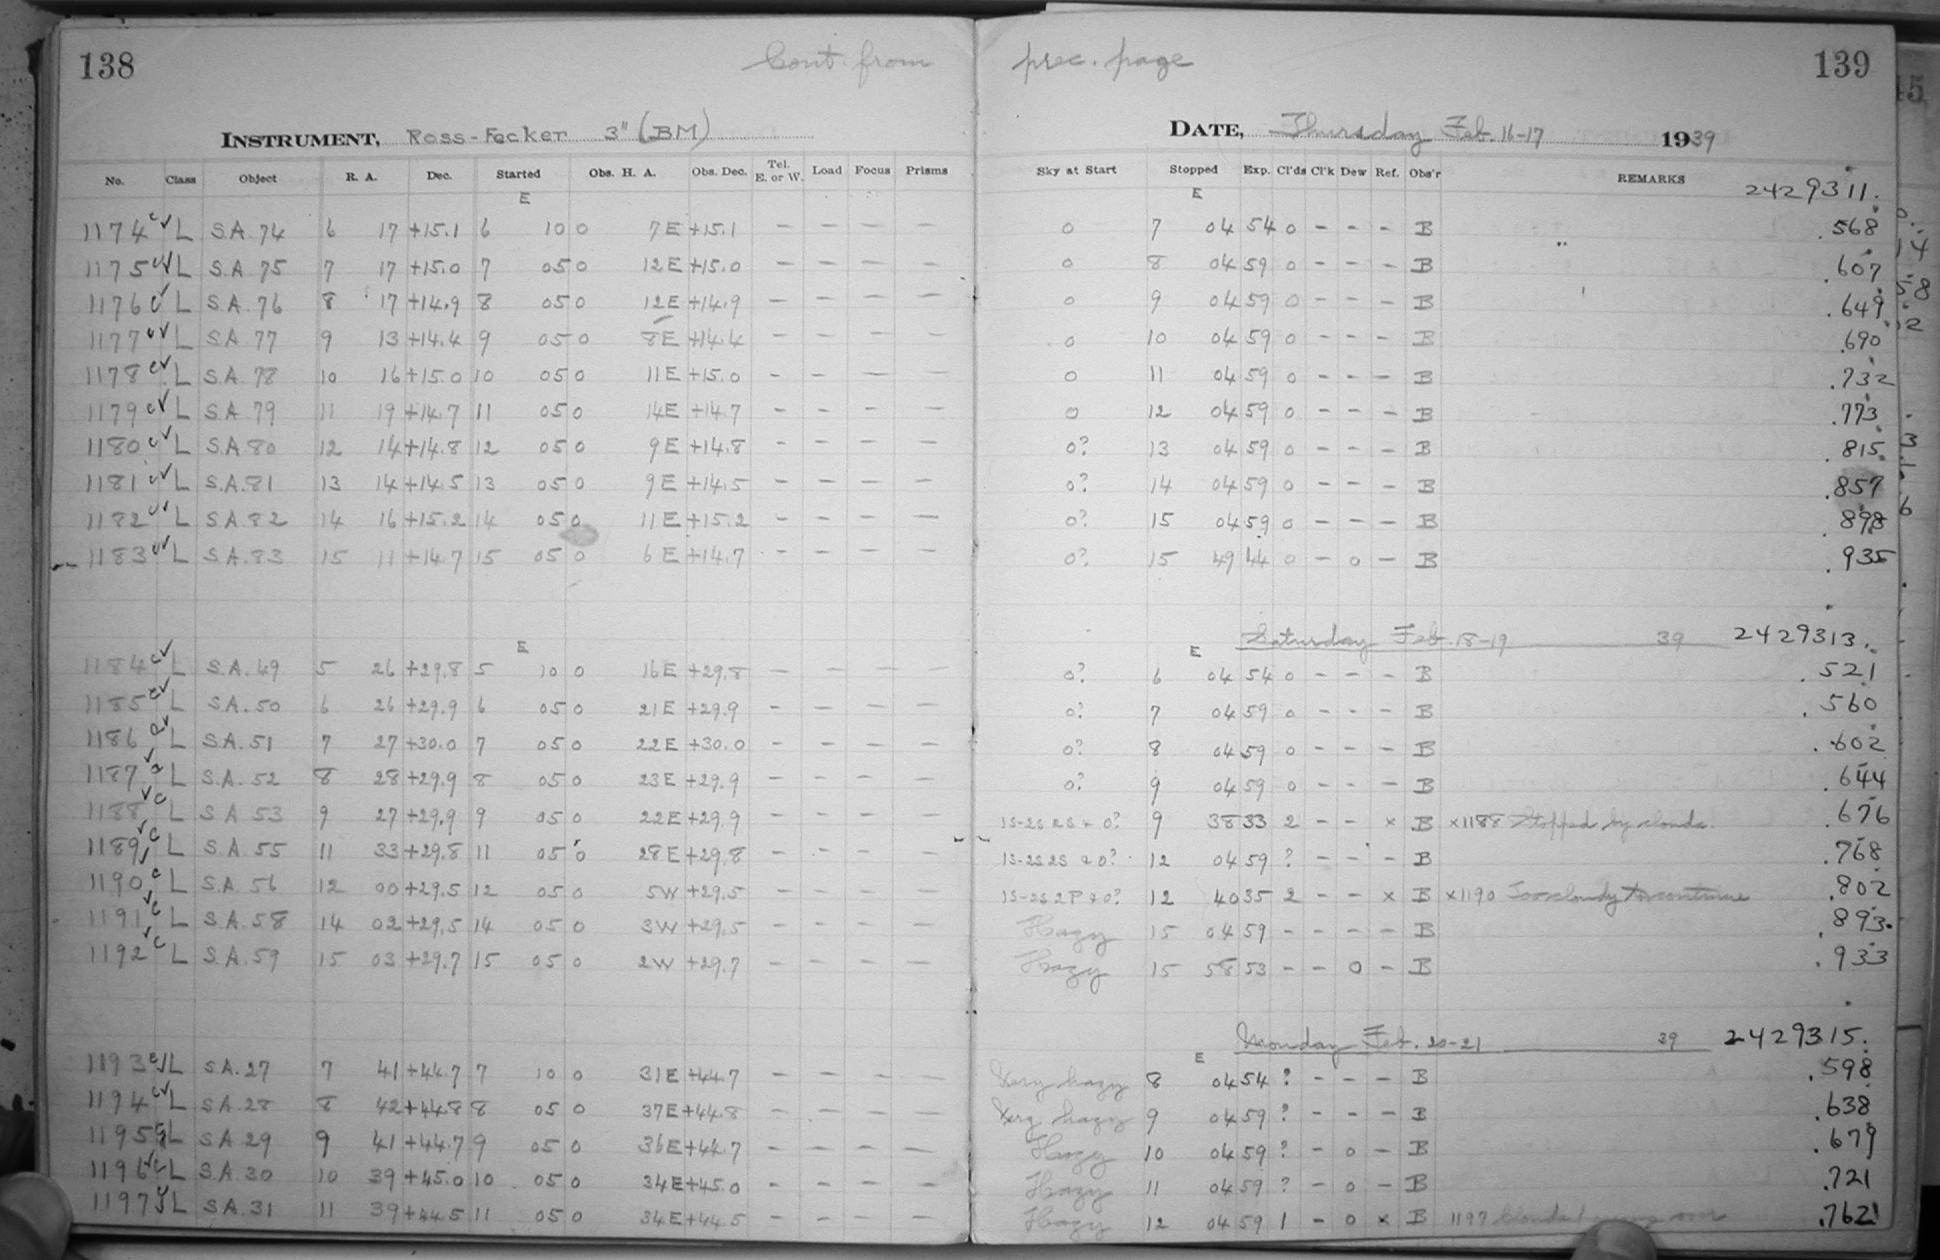 138 Cont. from prec. page 139
INSTRUMENT, Ross-Fecker 3" (BM) DATE, Thursday Feb. 16-17 1939
No. Class Object R. A. Dec. Started Obs. H. A. Obs. Dec. Tel. E. or W. Load Focus Prisms Sky at Start Stopped Exp. Cl'ds Cl'k Dew Ref. Obs'r REMARKS 2429311.
E E
1174 c✓ L S.A. 74 6 17 +15.1 6 10 0 7E +15.1 - - - - 0 7 04 54 0 - - - B .568
1175 c✓ L S.A 75 7 17 +15.0 7 05 0 12E +15.0 - - - - 0 8 04 59 0 - - - B .607
1176 c✓ L S.A. 76 8 17 +14.9 8 05 0 12E +14.9 - - - - 0 9 04 59 0 - - - B .649
1177 c✓ L S.A 77 9 13 +14.4 9 05 0 8E +14.4 - - - - 0 10 04 59 0 - - - B .690
1178 c✓ L S.A. 78 10 16 +15.0 10 05 0 11E +15.0 - - - - 0 11 04 59 0 - - - B .732
1179 c✓ L S.A. 79 11 19 +14.7 11 05 0 14E +14.7 - - - - 0 12 04 59 0 - - - B .773
1180 c✓ L S.A 80 12 14 +14.8 12 05 0 9E +14.8 - - - - 0? 13 04 59 0 - - - B .815
1181 c✓ L S.A. 81 13 14 +14.5 13 05 0 9E +14.5 - - - - 0? 14 04 59 0 - - - B .857
1182 c✓ L S.A. 82 14 16 +15.2 14 05 0 11E +15.2 - - - - 0? 15 04 59 0 - - - B .898
1183 c✓ L S.A. 83 15 11 +14.7 15 05 0 6E +14.7 - - - - 0? 15 49 44 0 - 0 - B .935
Saturday Feb. 18-19 39 2429313.
E E
1184 c✓ L S.A. 49 5 26 +29.8 5 10 0 16E +29.8 - - - - 0? 6 04 54 0 - - - B .521
1185 c✓ L S.A. 50 6 26 +29.9 6 05 0 21E +29.9 - - - - 0? 7 04 59 0 - - - B .560
1186 c✓ L S.A. 51 7 27 +30.0 7 05 0 22E +30.0 - - - - 0? 8 04 59 0 - - - B .602
1187 ✓c L S.A. 52 8 28 +29.9 8 05 0 23E +29.9 - - - - 0? 9 04 59 0 - - - B .644
1188 ✓c L S.A 53 9 27 +29.9 9 05 0 22E +29.9 - - - - 1S-2S 2S + 0? 9 38 33 2 - - x B x1188 Stopped by clouds. .676
1189 ✓c L S.A 55 11 33 +29.8 11 05 0 28E +29.8 - - - - 1S-2S 2S + 0? 12 04 59 ? - - - B .768
1190 ✓c L S.A 56 12 00 +29.5 12 05 0 5W +29.5 - - - - 1S-2S 2P + 0? 12 40 35 2 - - x B x1190 Too cloudy to continue .802
1191 ✓c L S.A. 58 14 02 +29.5 14 05 0 3W +29.5 - - - - Hazy 15 04 59 - - - - B .893
1192 ✓c L S.A. 59 15 03 +29.7 15 05 0 2W +29.7 - - - - Hazy 15 58 53 - - 0 - B .933
Monday Feb. 20-21 39 2429315.
E
1193 c✓ L S.A. 27 7 41 +44.7 7 10 0 31E +44.7 - - - - Very hazy 8 04 54 ? - - - B .598
1194 c✓ L S.A. 28 8 42 +44.8 8 05 0 37E +44.8 - - - - Very hazy 9 04 59 ? - - - B .638
1195 c✓ L S.A 29 9 41 +44.7 9 05 0 36E +44.7 - - - - Hazy 10 04 59 ? - 0 - B .679
1196 ✓c L S.A. 30 10 39 +45.0 10 05 0 34E +45.0 - - - - Hazy 11 04 59 ? - 0 - B .721
1197 c✓ L S.A. 31 11 39 +44.5 11 05 0 34E +44.5 - - - - Hazy 12 04 59 1 - 0 x B 1197 clouds over .762